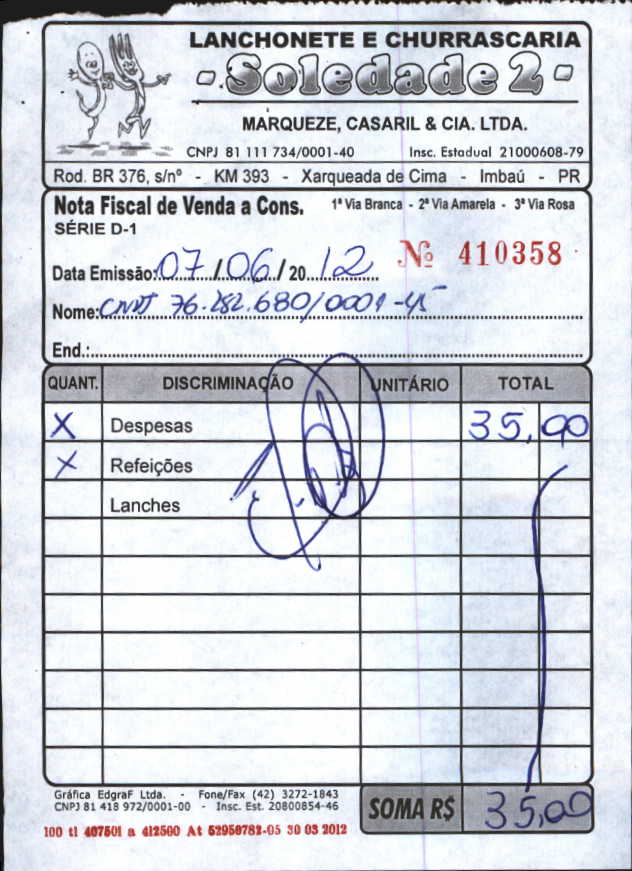 LANCHONETE E CHURRASCARIA
- Soledade 2 -
MARQUEZE, CASARIL & CIA. LTDA.
CNPJ 81 111 734/0001-40 Insc. Estadual 21000608-79
Rod. BR 376, s/nº - KM 393 - Xarqueada de Cima - Imbaú - PR
Nota Fiscal de Venda a Cons. 1ª Via Branca - 2ª Via Amarela - 3ª Via Rosa
SÉRIE D-1
Nº 410358
Data Emissão: 07/06/2012
Nome: CNPJ 76.282.680/0001-45
End.:
QUANT. DISCRIMINAÇÃO UNITÁRIO TOTAL
X Despesas 35,00
X Refeições
Lanches
Gráfica EdgraF Ltda. - Fone/Fax (42) 3272-1843
CNPJ 81 418 972/0001-00 - Insc. Est. 20800854-46
SOMA R$ 35,00
100 tl 407501 a 412500 At 52950782-05 30 03 2012